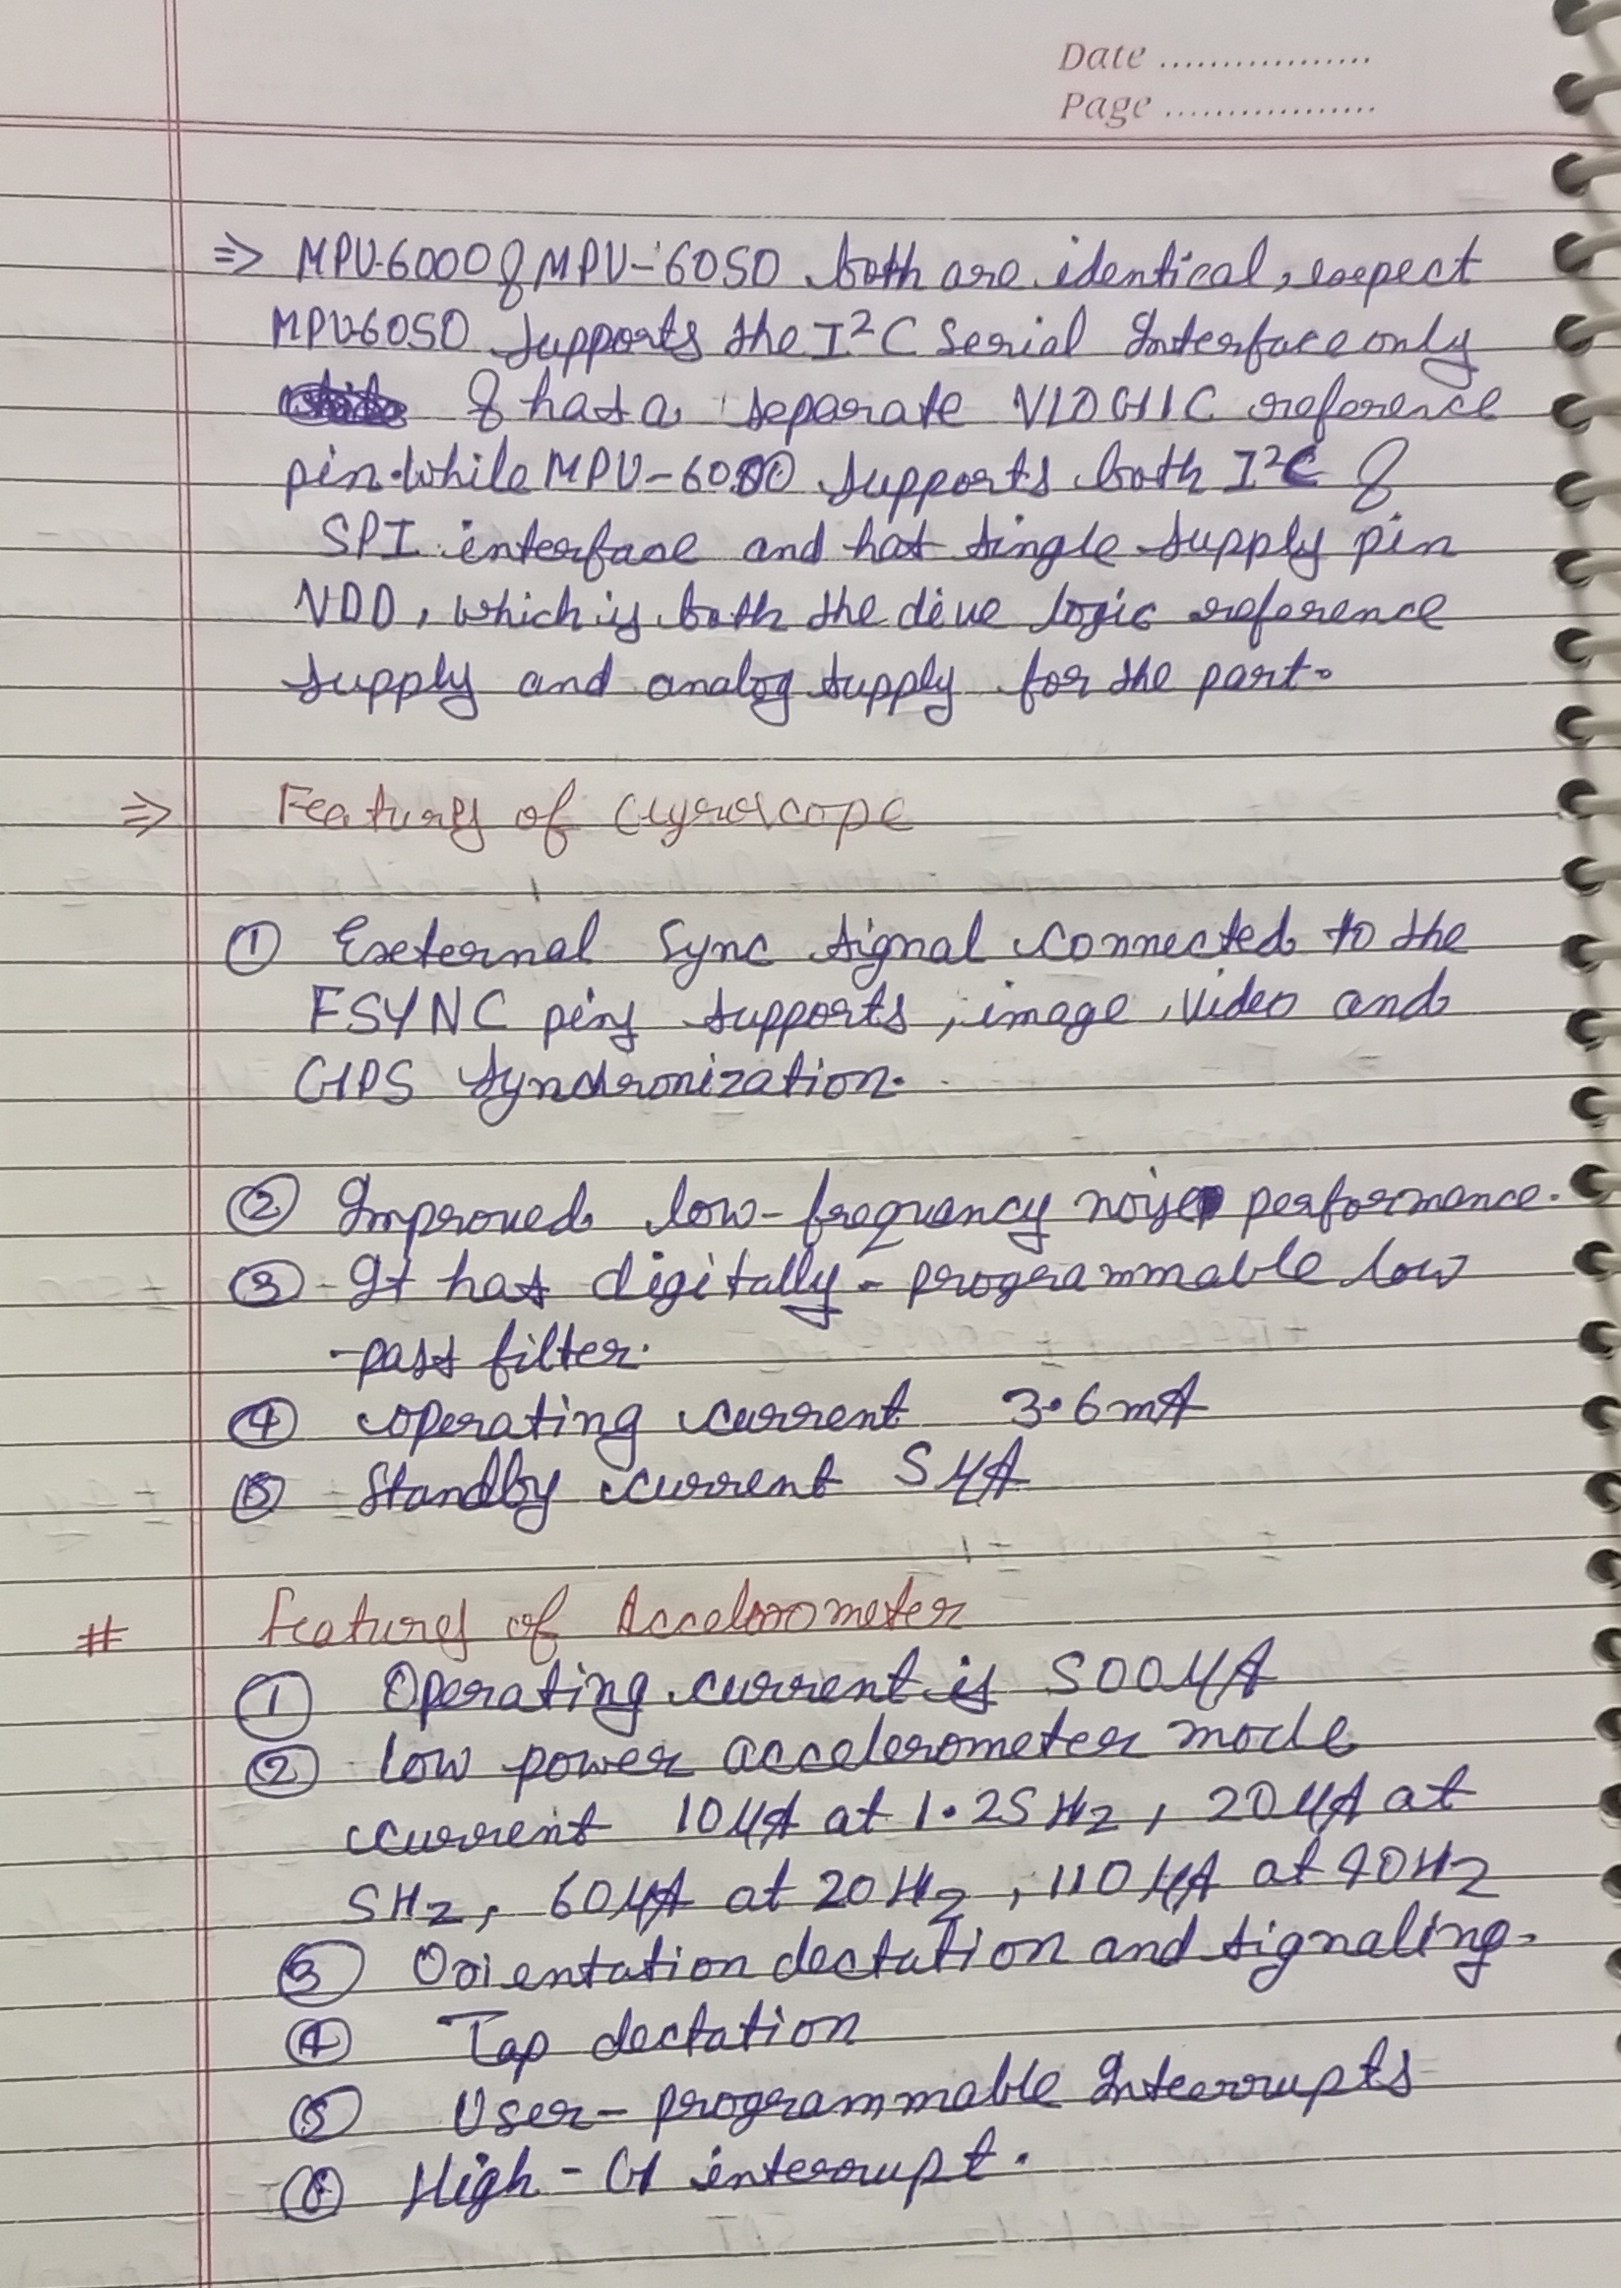 Date ..................
Page ..................
⇒ MPU-6000 & MPU-6050 both are identical, expect
MPU-6050 supports the I²C Serial Interface only
& has a separate VLOGIC reference
pin. while MPU-6000 supports both I²C &
SPI interface and has single supply pin
VDD, which is both the dive logic reference
supply and analog supply for the part.
⇒ Features of Gyroscope
① External Sync signal connected to the
FSYNC pins supports, image, video and
GPS synchronization.
② Improved low-frequency noise performance.
③ It has digitally-programmable low
-pass filter.
④ operating current 3.6mA
⑤ Standby current 5µA
# Features of Accelorometer
① Operating current is 500µA
② low power accelerometer mode
current 10µA at 1.25Hz, 20µA at
5Hz, 60µA at 20Hz, 110µA at 40Hz
③ Orientation dectation and signaling.
④ Tap dectation
⑤ User-programmable Interrupts
⑥ High-G interrupt.